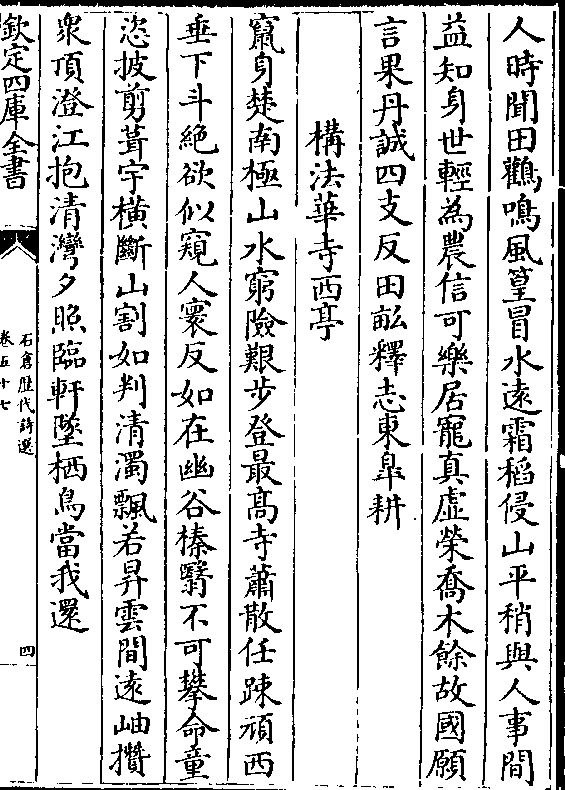 人時聞田鸛鳴風篁冒水遠霜稻侵山平稍與人事間
益知身世輕為農信可樂居寵真虚榮喬木餘故國願
言果丹誠四支反田畝釋志東臯耕
構法華寺西亭
竄身楚南極山水窮險艱步登最高寺蕭散任踈頑西
垂下斗絶欲似窺人寰反如在幽谷榛翳不可攀命童
恣披剪葺宇横斷山割如判清濁飄若昇雲間遠岫攢
衆頂澄江抱清灣夕照臨軒墜栖鳥當我還
欽定四庫全書
石倉歴代詩選
卷五十七
四